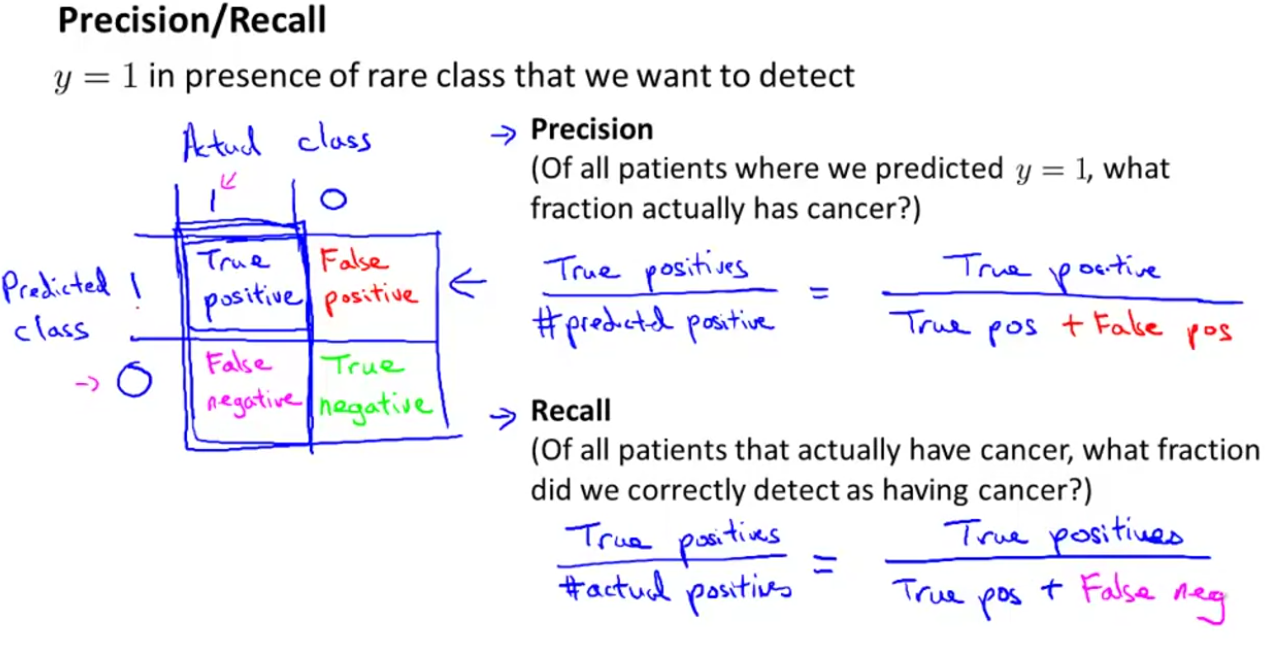 Precision/Recall
y = 1 in presence of rare class that we want to detect
Actual class
1 0
Predicted class
1
True positive
False positive
0
False negative
True negative
→ Precision
(Of all patients where we predicted y = 1, what
fraction actually has cancer?)
←
True positives
#predicted positive
=
True positive
True pos + False pos
→ Recall
(Of all patients that actually have cancer, what fraction
did we correctly detect as having cancer?)
True positives
#actual positives
=
True positives
True pos + False neg